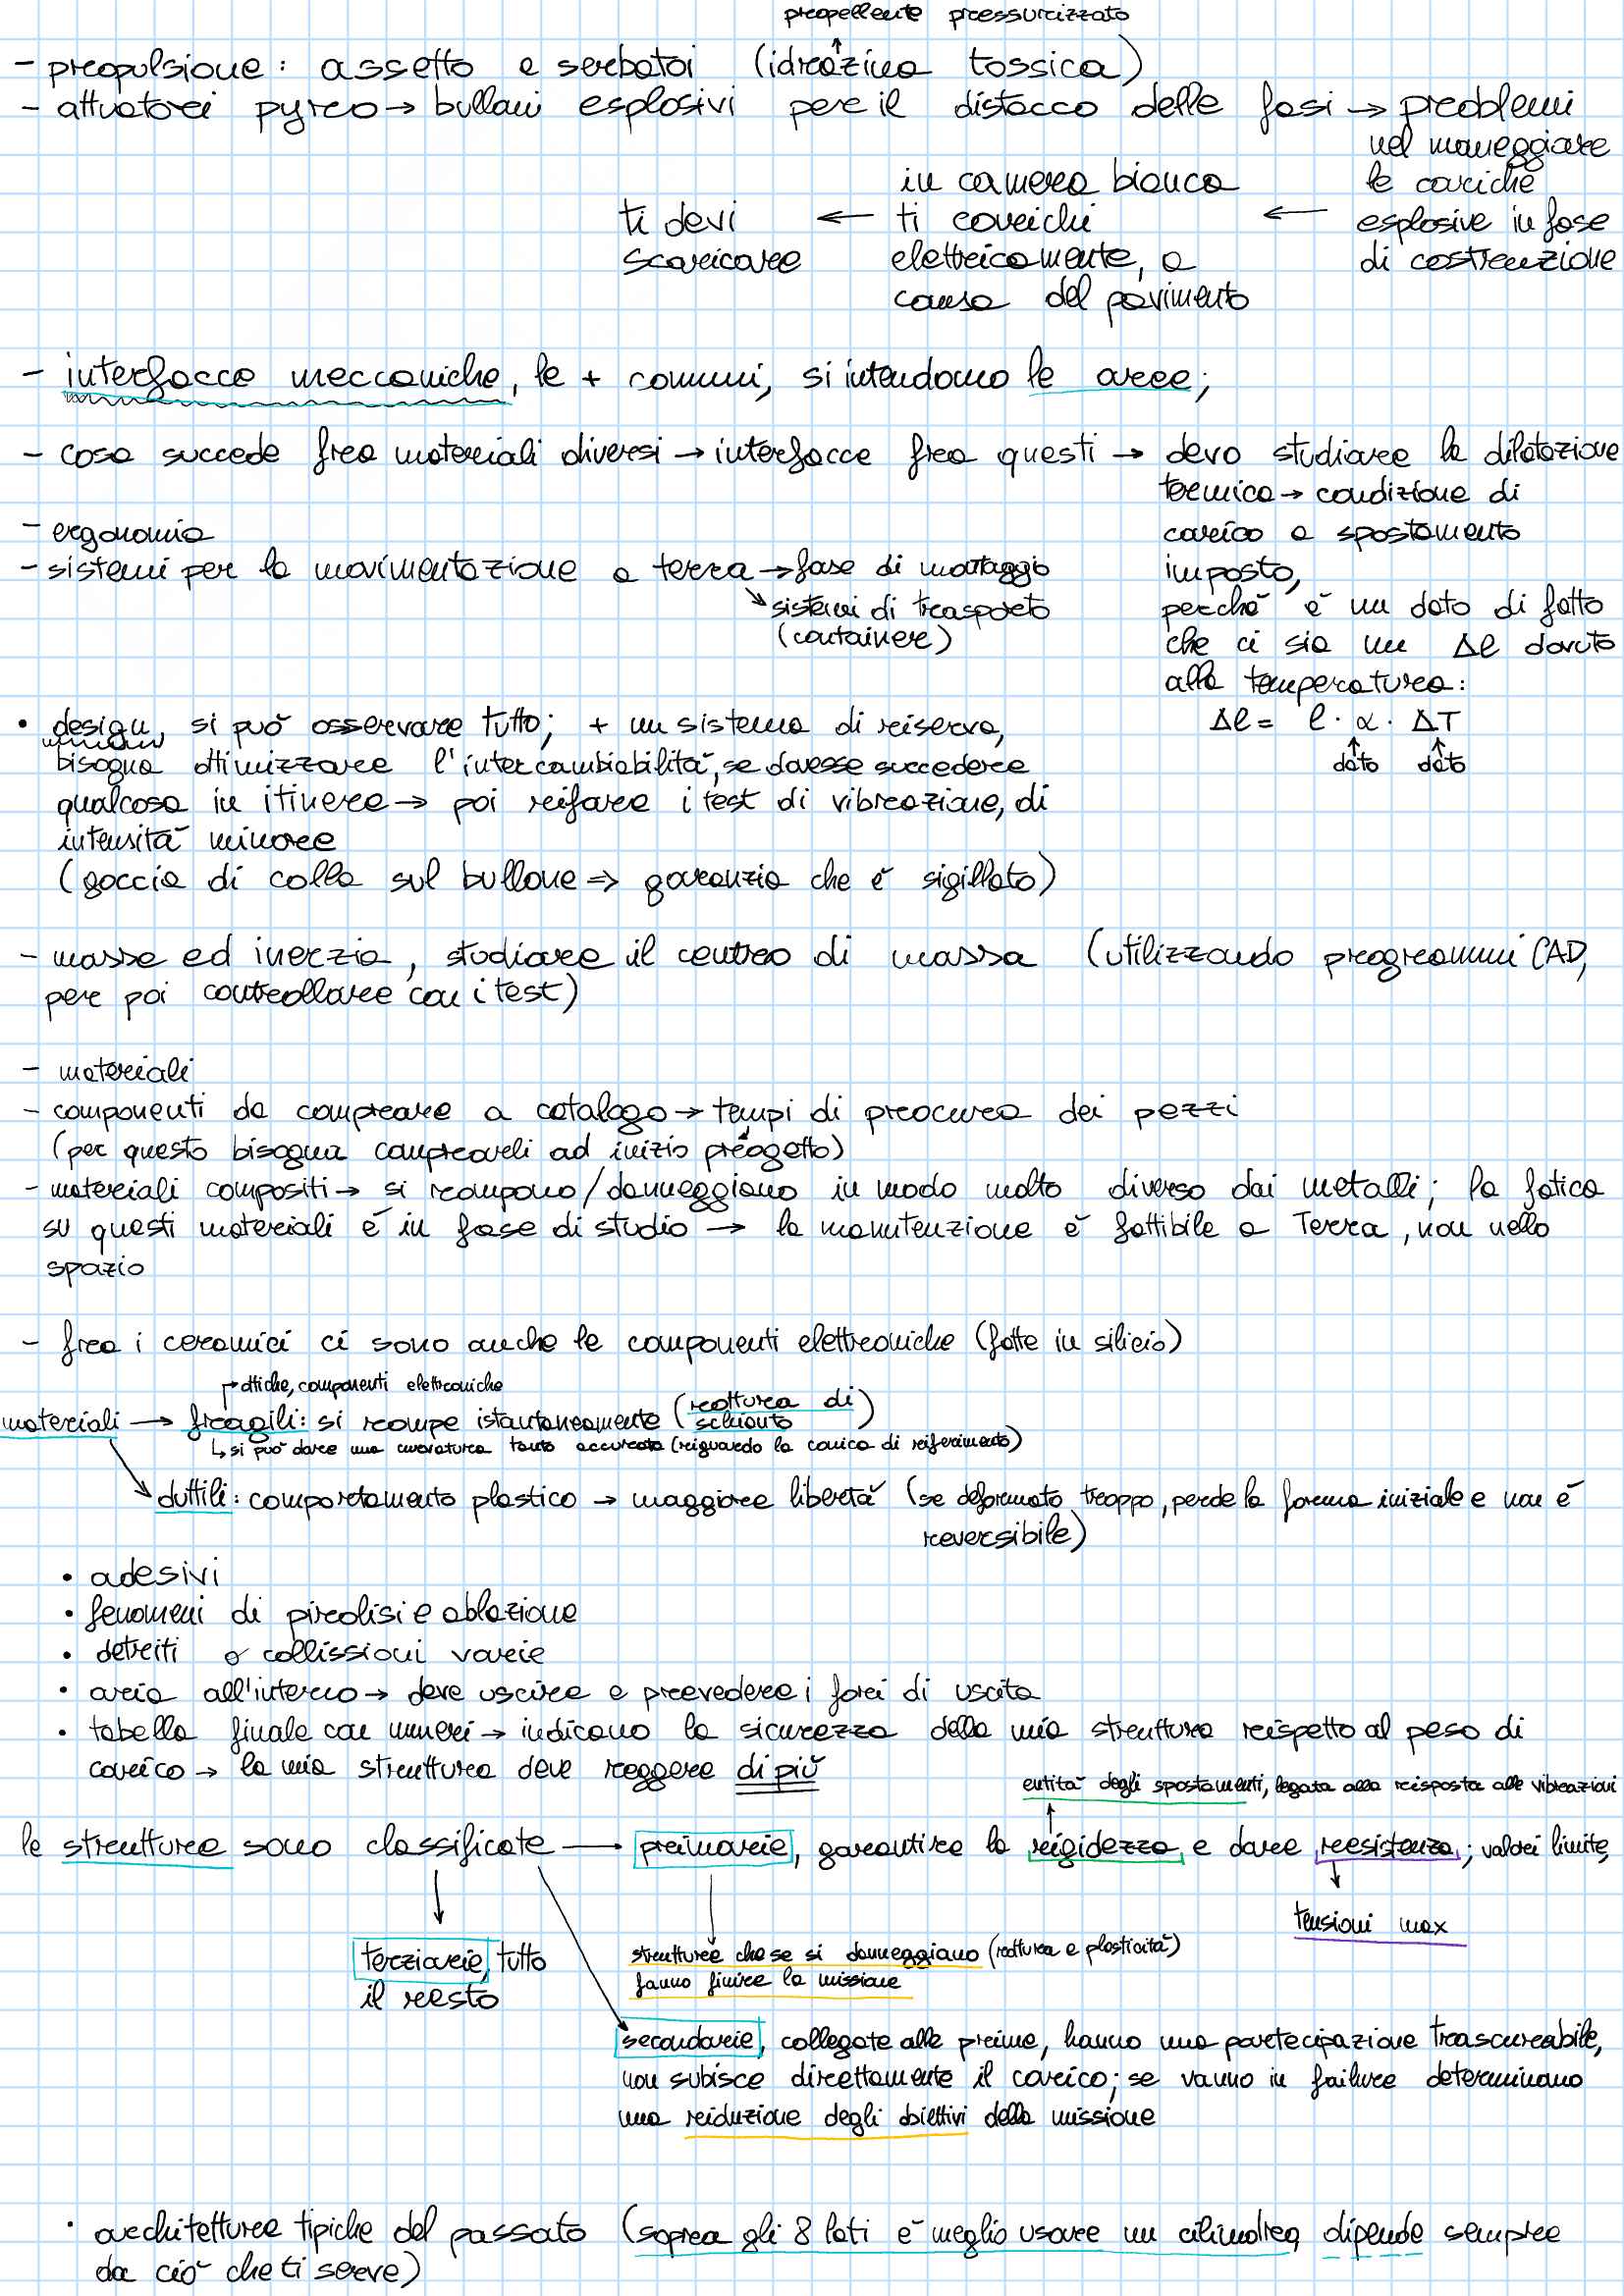 propellente pressurizzato
↑
- propulsione: assetto e serbatoi (idrazina tossica)
- attuatori pyro → bulloni esplosivi per il distacco delle fasi → problemi
nel maneggiare
le cariche
esplosive in fase
di costruzione
← in camera bianca
ti carichi
elettricamente, a
causa del pavimento
← ti devi
scaricare
- interfacce meccaniche, le + comuni, si intendono le aree;
- cosa succede fra materiali diversi → interfacce fra questi → devo studiare la dilatazione
termica → condizione di
carico a spostamento
imposto,
perché è un dato di fatto
che ci sia un Δl dovuto
alla temperatura:
Δl = l · α · ΔT
↑ ↑
dato dato
- ergonomia
- sistemi per la movimentazione a terra → fase di montaggio
↘ sistemi di trasporto
(container)
• design, si può osservare tutto; + un sistema di riserva,
bisogna ottimizzare l'intercambiabilità, se dovesse succedere
qualcosa in itinere → poi rifare i test di vibrazione, di
intensità minore
(goccia di colla sul bullone ⇒ garanzia che è sigillato)
- masse ed inerzia, studiare il centro di massa (utilizzando programmi CAD,
per poi controllare con i test)
- materiali
- componenti da comprare a catalogo → tempi di procura dei pezzi
(per questo bisogna comprarli ad inizio progetto)
- materiali compositi → si rompono/danneggiano in modo molto diverso dai metalli; la fatica
su questi materiali è in fase di studio → la manutenzione è fattibile a Terra, non nello
spazio
- fra i ceramici ci sono anche le componenti elettroniche (fatte in silicio)
→ ottiche, componenti elettroniche
materiali → fragili: si rompe istantaneamente (rottura di
schianto)
↳ si può dare una curvatura tanto accurata (riguardo la conica di riferimento)
↘ duttili: comportamento plastico → maggiore libertà (se deformato troppo, perde la forma iniziale e non è
reversibile)
• adesivi
• fenomeni di pirolisi e ablazione
• detriti o collissioni varie
• aria all'interno → deve uscire e prevedere i fori di uscita
• tabella finale con numeri → indicano la sicurezza della mia struttura rispetto al peso di
carico → la mia struttura deve reggere di più
entità degli spostamenti, legata alla risposta alle vibrazioni
↑
le strutture sono classificate → primarie, garantire la rigidezza e dare resistenza; valori limite,
↓
tensioni max
↓
strutture che se si danneggiano (rottura e plasticità)
fanno finire la missione
↓
terziarie, tutto
il resto
↘ secondarie, collegate alle prime, hanno una partecipazione trascurabile,
non subisce direttamente il carico; se vanno in failure determinano
una riduzione degli obiettivi della missione
• architetture tipiche del passato (sopra gli 8 lati è meglio usare un cilindro, dipende sempre
da ciò che ti serve)